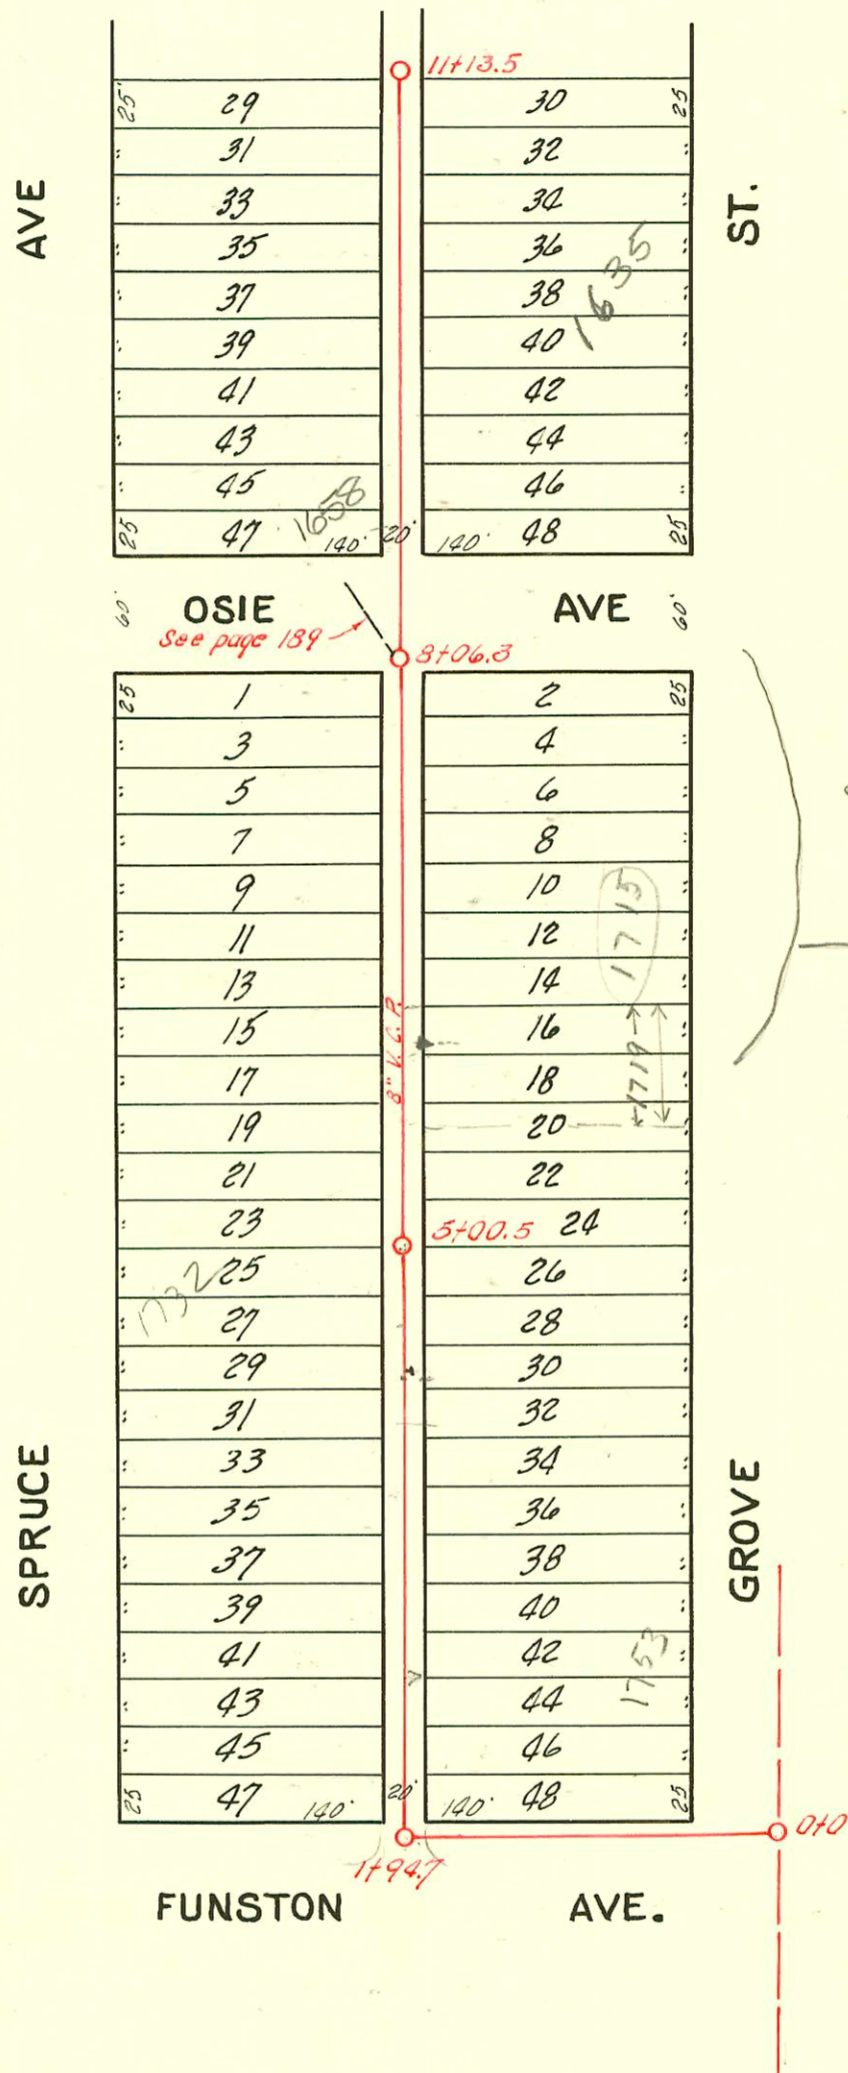 11+13.5
25' 29 30 25
31 32
33 34
35 36
37 38
39 40
41 42
43 44
45 46
25 47 140' 20' 140' 48 25
1635
1658
AVE
ST.
60' OSIE AVE 60'
See page 189
8+06.3
25 1 2 25
3 4
5 6
7 8
9 10
11 12
13 14
15 16
17 18
19 20
21 22
23 24
5+00.5
25 26
27 28
29 30
31 32
33 34
35 36
37 38
39 40
41 42
43 44
45 46
25 47 140' 20' 140' 48 25
1715
1719
8" V.C.P.
1732
1753
SPRUCE
GROVE
0+0
1+94.7
FUNSTON AVE.